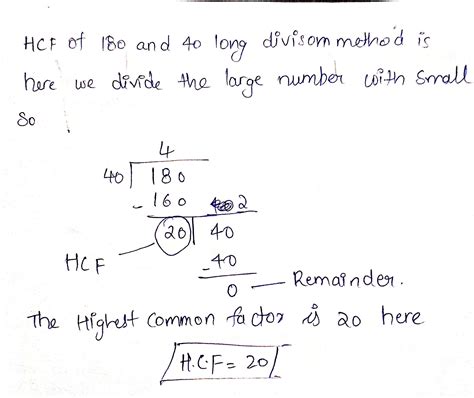 HCF of 180 and 40 long divisom method is
here we divide the large number with small
So
4
40 180
- 160 2
20 40
HCF
- 40
0 Remainder.
The Highest Common factor is 20 here
H.C.F = 20